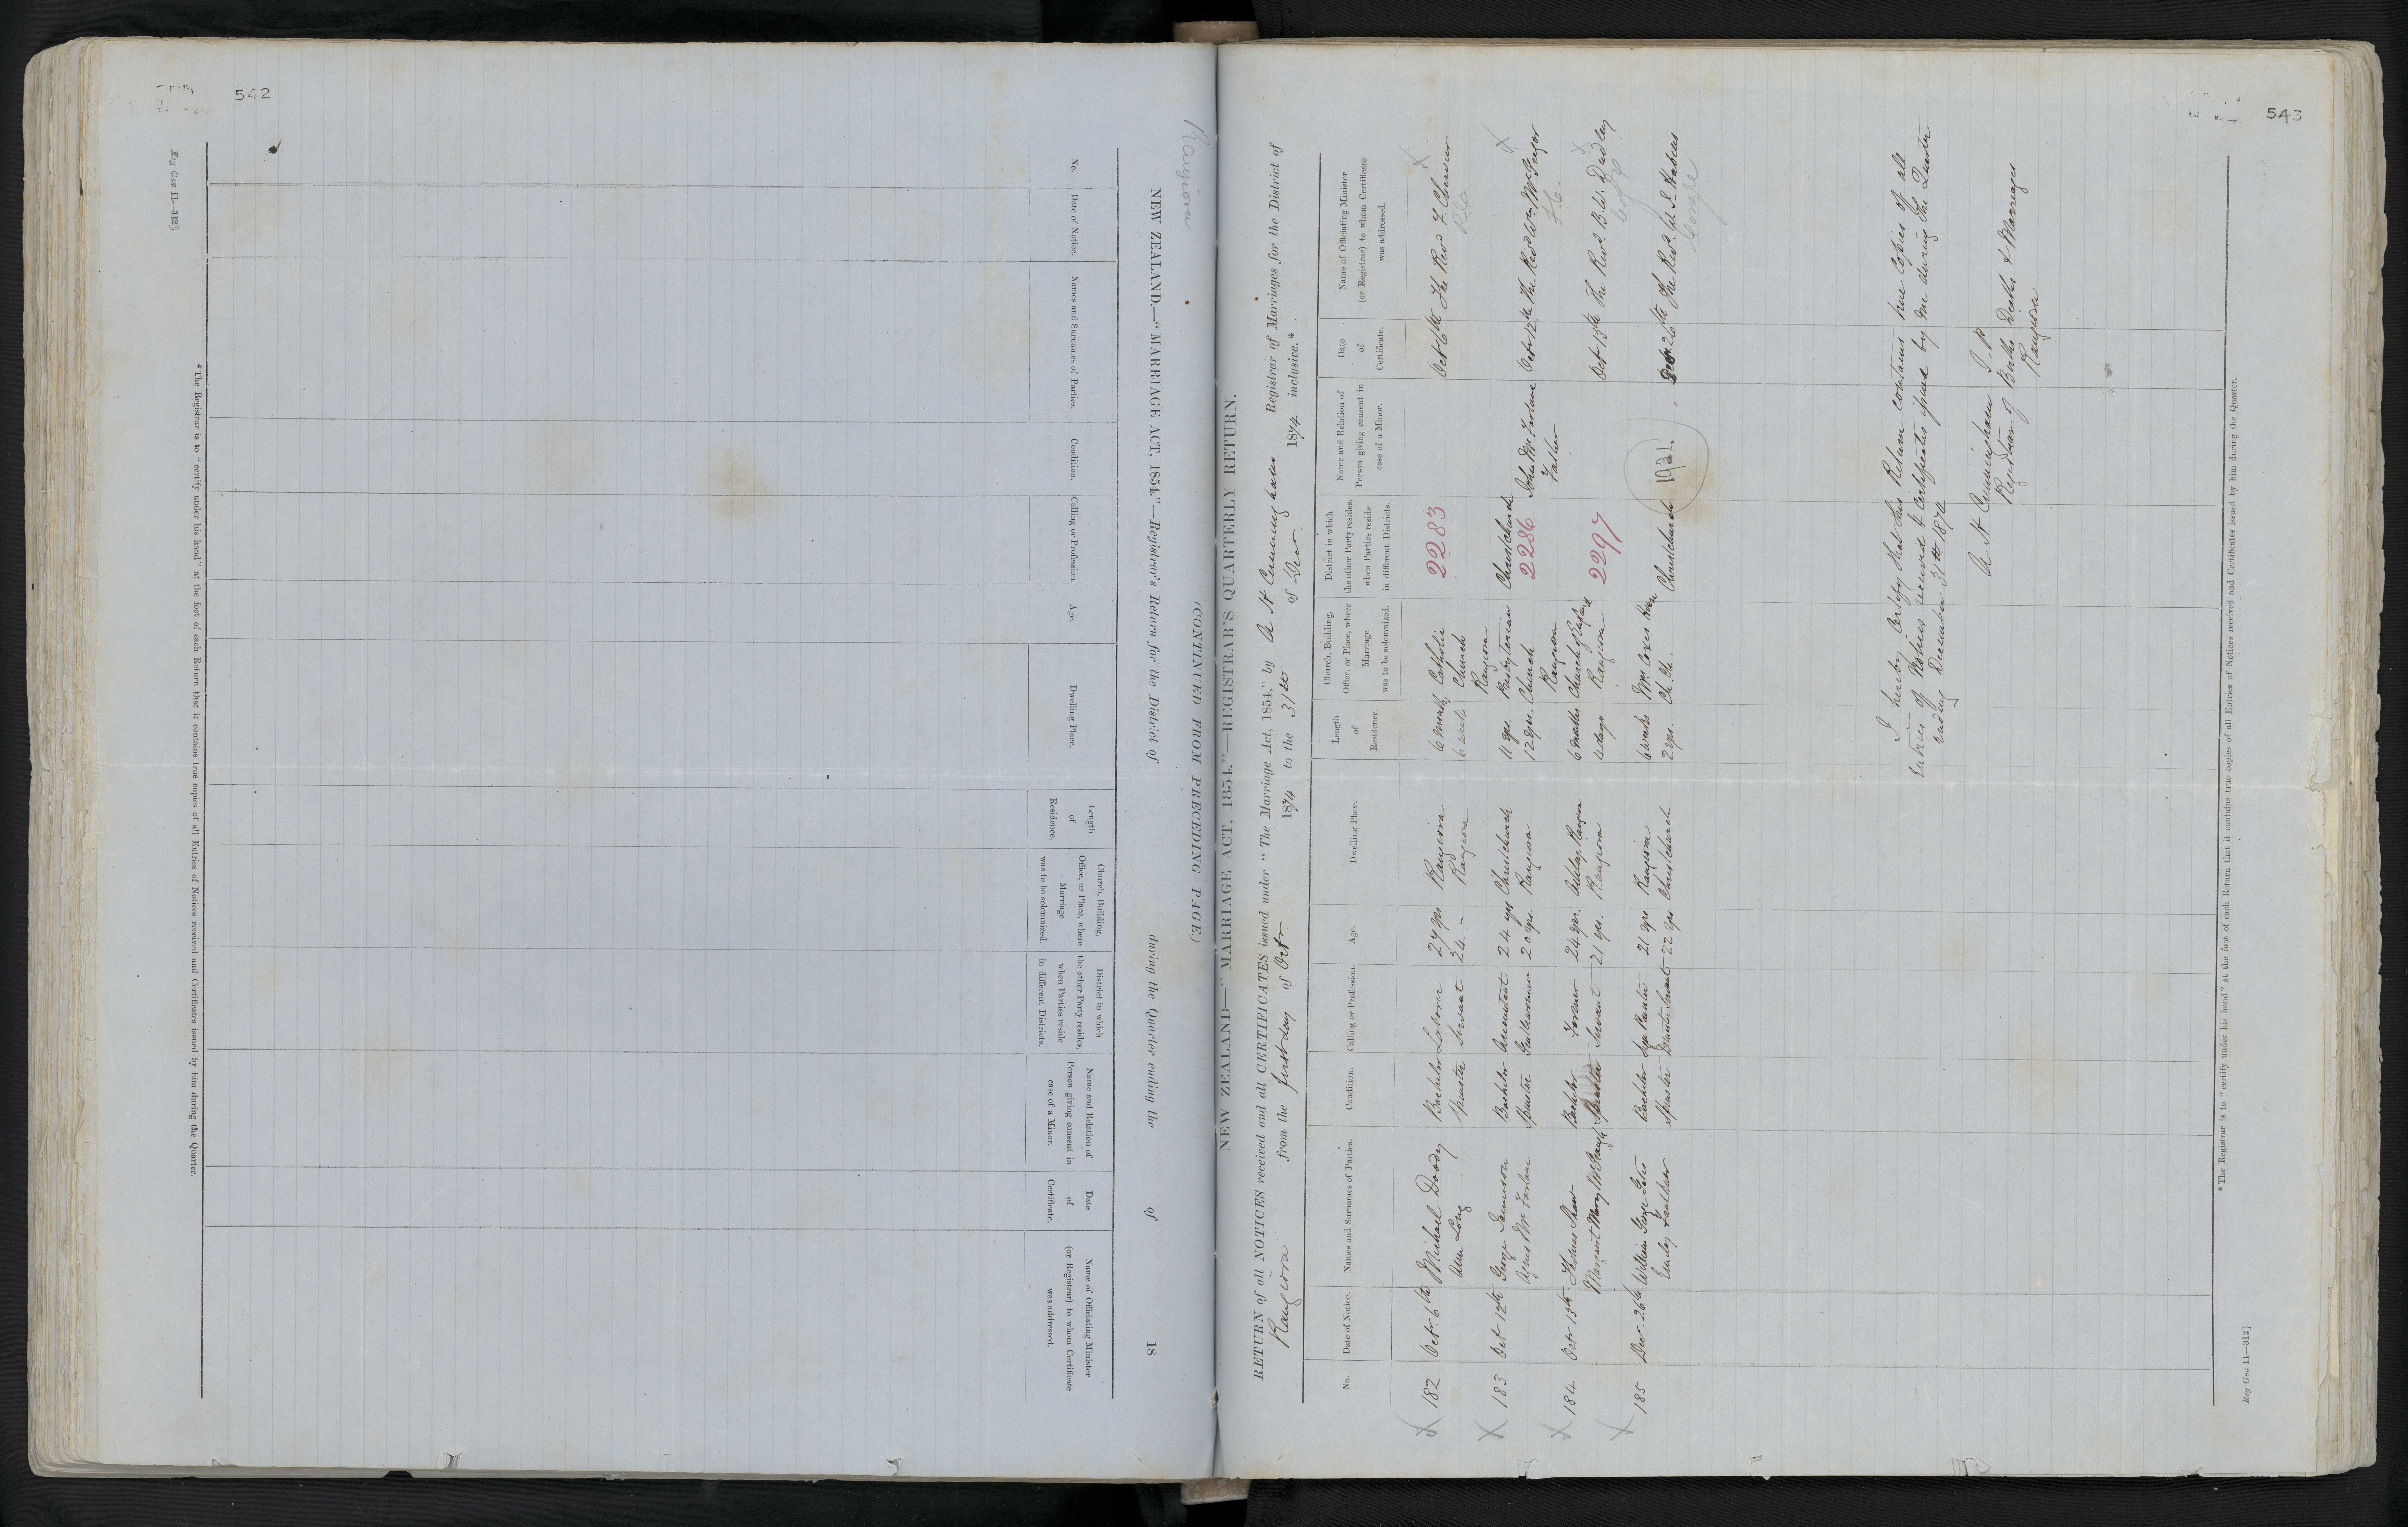 542
Rangiora
NEW ZEALAND.—"MARRIAGE ACT, 1854."—Registrar's Return for the District of during the Quarter ending the of 18
(CONTINUED FROM PRECEDING PAGE.)
No.
Date of Notice.
Names and Surnames of Parties.
Condition.
Calling or Profession.
Age.
Dwelling Place.
Length
of
Residence.
Church, Building,
Office, or Place, where
Marriage
was to be solemnized.
District in which
the other Party resides,
when Parties reside
in different Districts.
Name and Relation of
Person giving consent in
case of a Minor.
Date
of
Certificate.
Name of Officiating Minister
(or Registrar) to whom Certificate
was addressed.
*The Registrar is to "certify under his hand" at the foot of each Return that it contains true copies of all Entries of Notices received and Certificates issued by him during the Quarter.
543
NEW ZEALAND—"MARRIAGE ACT, 1854."—REGISTRAR'S QUARTERLY RETURN.
RETURN of all NOTICES received and all CERTIFICATES issued under "The Marriage Act, 1854," by A H Cunningham Registrar of Marriages for the District of
Rangiora from the first day of Octr 1874 to the 31st of Decr 1874 inclusive.*
No.
Date of Notice.
Names and Surnames of Parties.
Condition.
Calling or Profession.
Age.
Dwelling Place.
Length
of
Residence.
Church, Building,
Office, or Place, where
Marriage
was to be solemnized.
District in which
the other Party resides,
when Parties reside
in different Districts.
Name and Relation of
Person giving consent in
case of a Minor.
Date
of
Certificate.
Name of Officiating Minister
(or Registrar) to whom Certificate
was addressed.
X 182 Oct 6th Michael Doody Bachelor Laborer 27 yrs Rangiora 6 months Catholic 2283 Oct 6th The Revd F. Chervier X
Ann Long Spinster Servant 24 - Rangiora 6 weeks Church R C
Rangiora
X 183 Oct 12th George Jamieson Bachelor Accountant 24 yrs Christchurch 11 yrs. Presbyterian Christchurch John McFarlane Oct 12th The Revd Wm McGregor X
Agnes McFarlane Spinster Gentlewoman 20 yrs. Rangiora 12 yrs. Church 2286 Father
Rangiora
X 184 Octr 13th Thomas Shaw Bachelor Farmer 24 yrs. Ashley, Rangiora 6 months Church of England 2297 Oct 13th The Revd. B. W. Dudley X
Margaret Mary Spinster Servant 21 yrs. Rangiora 4 days Rangiora
X 185 Decr 26th William George Bachelor 21 yrs Rangiora 6 weeks Mr Coxes Christchurch Decr 26th The Revd. W. J. Habens
Emily Spinster Domestic Servant 22 yrs Christchurch 2 yrs. Ch. Ch. Congre
I hereby certify that this Return contains true copies of all
Entries of Notices received & Certificates issued by me during the Quarter
ending December 31st 1874
A H Cunningham J.P.
Registrar of Births Deaths & Marriages
Rangiora
*The Registrar is to "certify under his hand" at the foot of each Return that it contains true copies of all Entries of Notices received and Certificates issued by him during the Quarter.
Reg Gen 11—312]